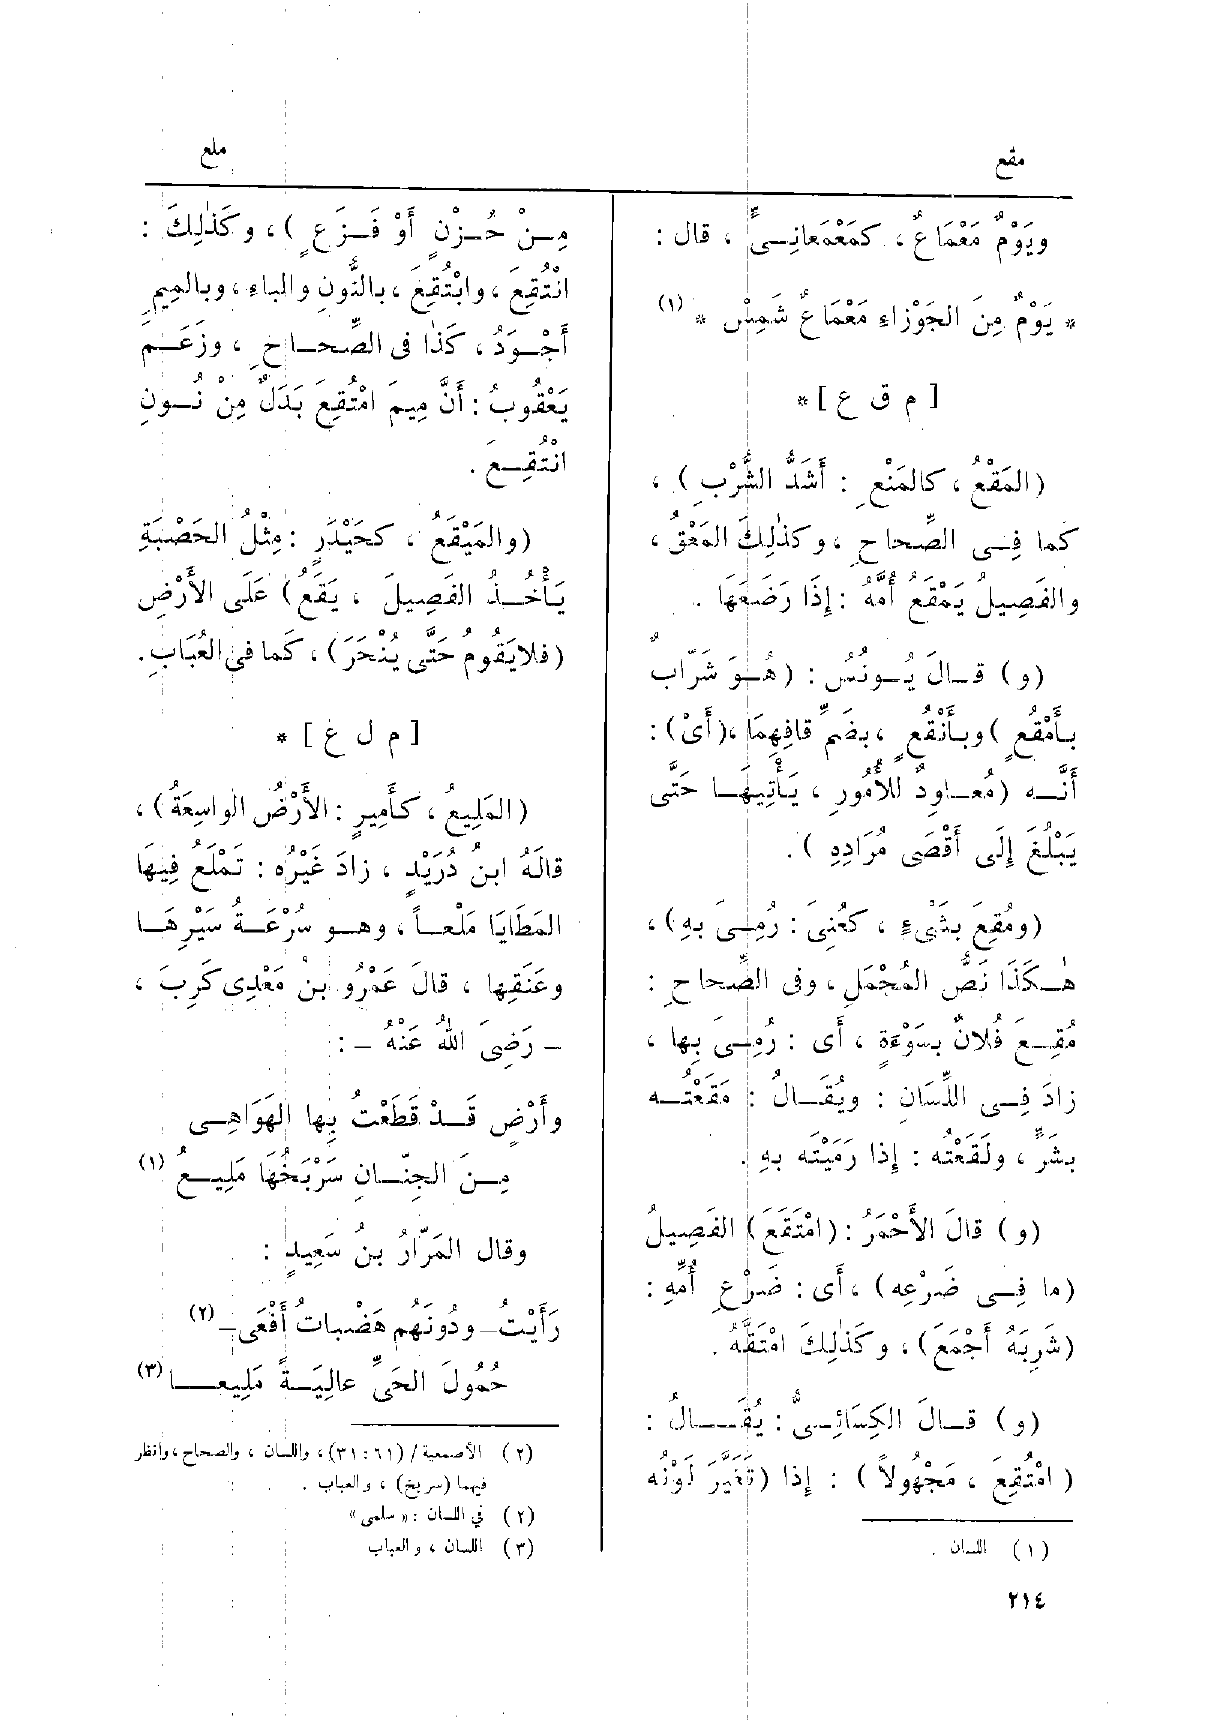 مقع
ملع
ويَوْمٌ مَعْمَاعٌ ، كمَعْمَعانِىٍّ ، قال :
* يَوْمٌ مِنَ الجَوْزاءِ مَعْمَاعٌ شَمِسْ * (١)
[ م ق ع ] *
(المَقْعُ ، كالمَنْعِ : أَشَدُّ الشُّرْبِ ) ،
كما فِى الصِّحاحِ ، وكَذٰلِكَ المَعْقُ ،
والفَصِيلُ يَمْقَعُ أُمَّهُ : إِذا رَضَعَهَا .
(و) قالَ يُونُسُ : (هُوَ شَرّابٌ
بأَمْقُعٍ )وبأَنْقُعٍ ، بضَمِّ قافِهِمَا ،(أَىْ):
أَنَّه (مُعاوِدٌ للأُمُورِ ، يَأْتِيهَا حَتَّى
يَبْلُغَ إِلَى أَقْصَى مُرَادِهِ ) .
(ومُقِعَ بشْىءٍ ، كعُنِىَ : رُمِىَ بهِ) ،
هٰكَذَا نَصُّ المُجْمَلِ ، وفى الصِّحاحِ :
مُقِعَ فُلانٌ بسَوْءَةٍ ، أى : رُمِىَ بِها ،
زادَ فِى اللِّسَانِ : ويُقَالُ : مَقَعْتُه
بشَرٍّ ، ولَقَعْتُه : إِذا رَمَيْتَه بهِ .
(و) قالَ الأَحْمَرُ : (امْتَقَعَ) الفَصِيلُ
(ما فِى ضَرْعِه) ، أَى : ضَرْعِ أُمِّهِ :
(شَرِبَهُ أَجْمَعَ) ، وكَذٰلِكَ امْتَقَّهُ .
(و) قالَ الكِسَائِىُّ : يُقَالُ :
( امْتُقِعَ ، مَجْهُولاً ) : إِذا (تَغَيَّرَ لَوْنُه
(١) اللسان .
٢١٤
مِنْ حُزْنٍ أَوْ فَزَعٍ )، وكَذٰلِكَ :
انْتُقِعَ ، وابْتُقِعَ ، بالنُّونِ والباءِ ، وبالمِيمِ
أَجْوَدُ ، كَذٰا فى الصِّحاحِ ، وزَعَم
يَعْقُوبُ : أَنَّ مِيمَ امْتُقِعَ بَدَلٌ مِنْ نُونِ
انْتُقِعَ .
(والمَيْقَعُ ، كحَيْدَرٍ : مِثْلُ الحَصْبَةِ
يَأْخُذُ الفَصِيلَ ، يَقَعُ) عَلَى الأَرْضِ
(فلايَقُومُ حَتَّى يُنْحَرَ) ، كَما فى العُبَابِ .
[ م ل ع ] *
(المَلِيعُ ، كأَمِيرٍ : الأَرْضُ الواسِعَةُ) ،
قالَهُ ابنُ دُرَيْدٍ ، زادَ غَيْرُه : تَمْلَعُ فِيهَا
المَطَايَا مَلْعاً ، وهو سُرْعَةُ سَيْرِهَا
وعَنَقِها ، قالَ عَمْرُو بنُ مَعْدِى كَرِبَ ،
– رَضِىَ اللهُ عَنْهُ – :
وأَرْضٍ قَدْ قَطَعْتُ بِها الهَوَاهِى
مِنَ الجِنّانِ سَرْبَخُهَا مَلِيعُ (١)
وقال المَرّارُ بنُ سَعِيدٍ :
رَأَيْتُ– ودُونَهُم هَضْباتُ أَفْعَى– (٢)
حُمُولَ الحَىِّ عالِيَةً مَلِيعا (٣)
(٢) الأصمعية / (٦١ : ٣١) ، واللسان ، والصحاح ، وانظر
فيهما (سربخ) ، والعباب .
(٢) في اللسان : « سلمى »
(٣) اللسان ، والعباب